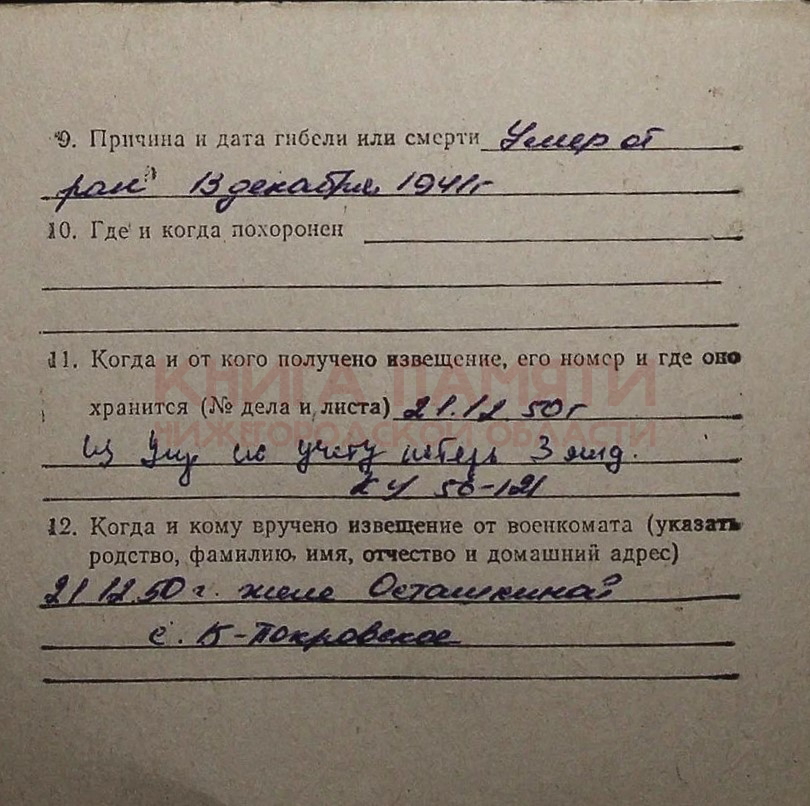 9. Причина и дата гибели или смерти Умер от
ран 13 декабря 1941г
10. Где и когда похоронен
11. Когда и от кого получено извещение, его номер и где оно
КНИГА ПАМЯТИ
хранится (№ дела и листа) 21.12 50г
НИЖЕГОРОДСКОЙ ОБЛАСТИ
из Упр по учету потерь
50-121
12. Когда и кому вручено извещение от военкомата (указать
родство, фамилию, имя, отчество и домашний адрес)
21 12.50 г. жене Осташкина
с. Б-Покровское